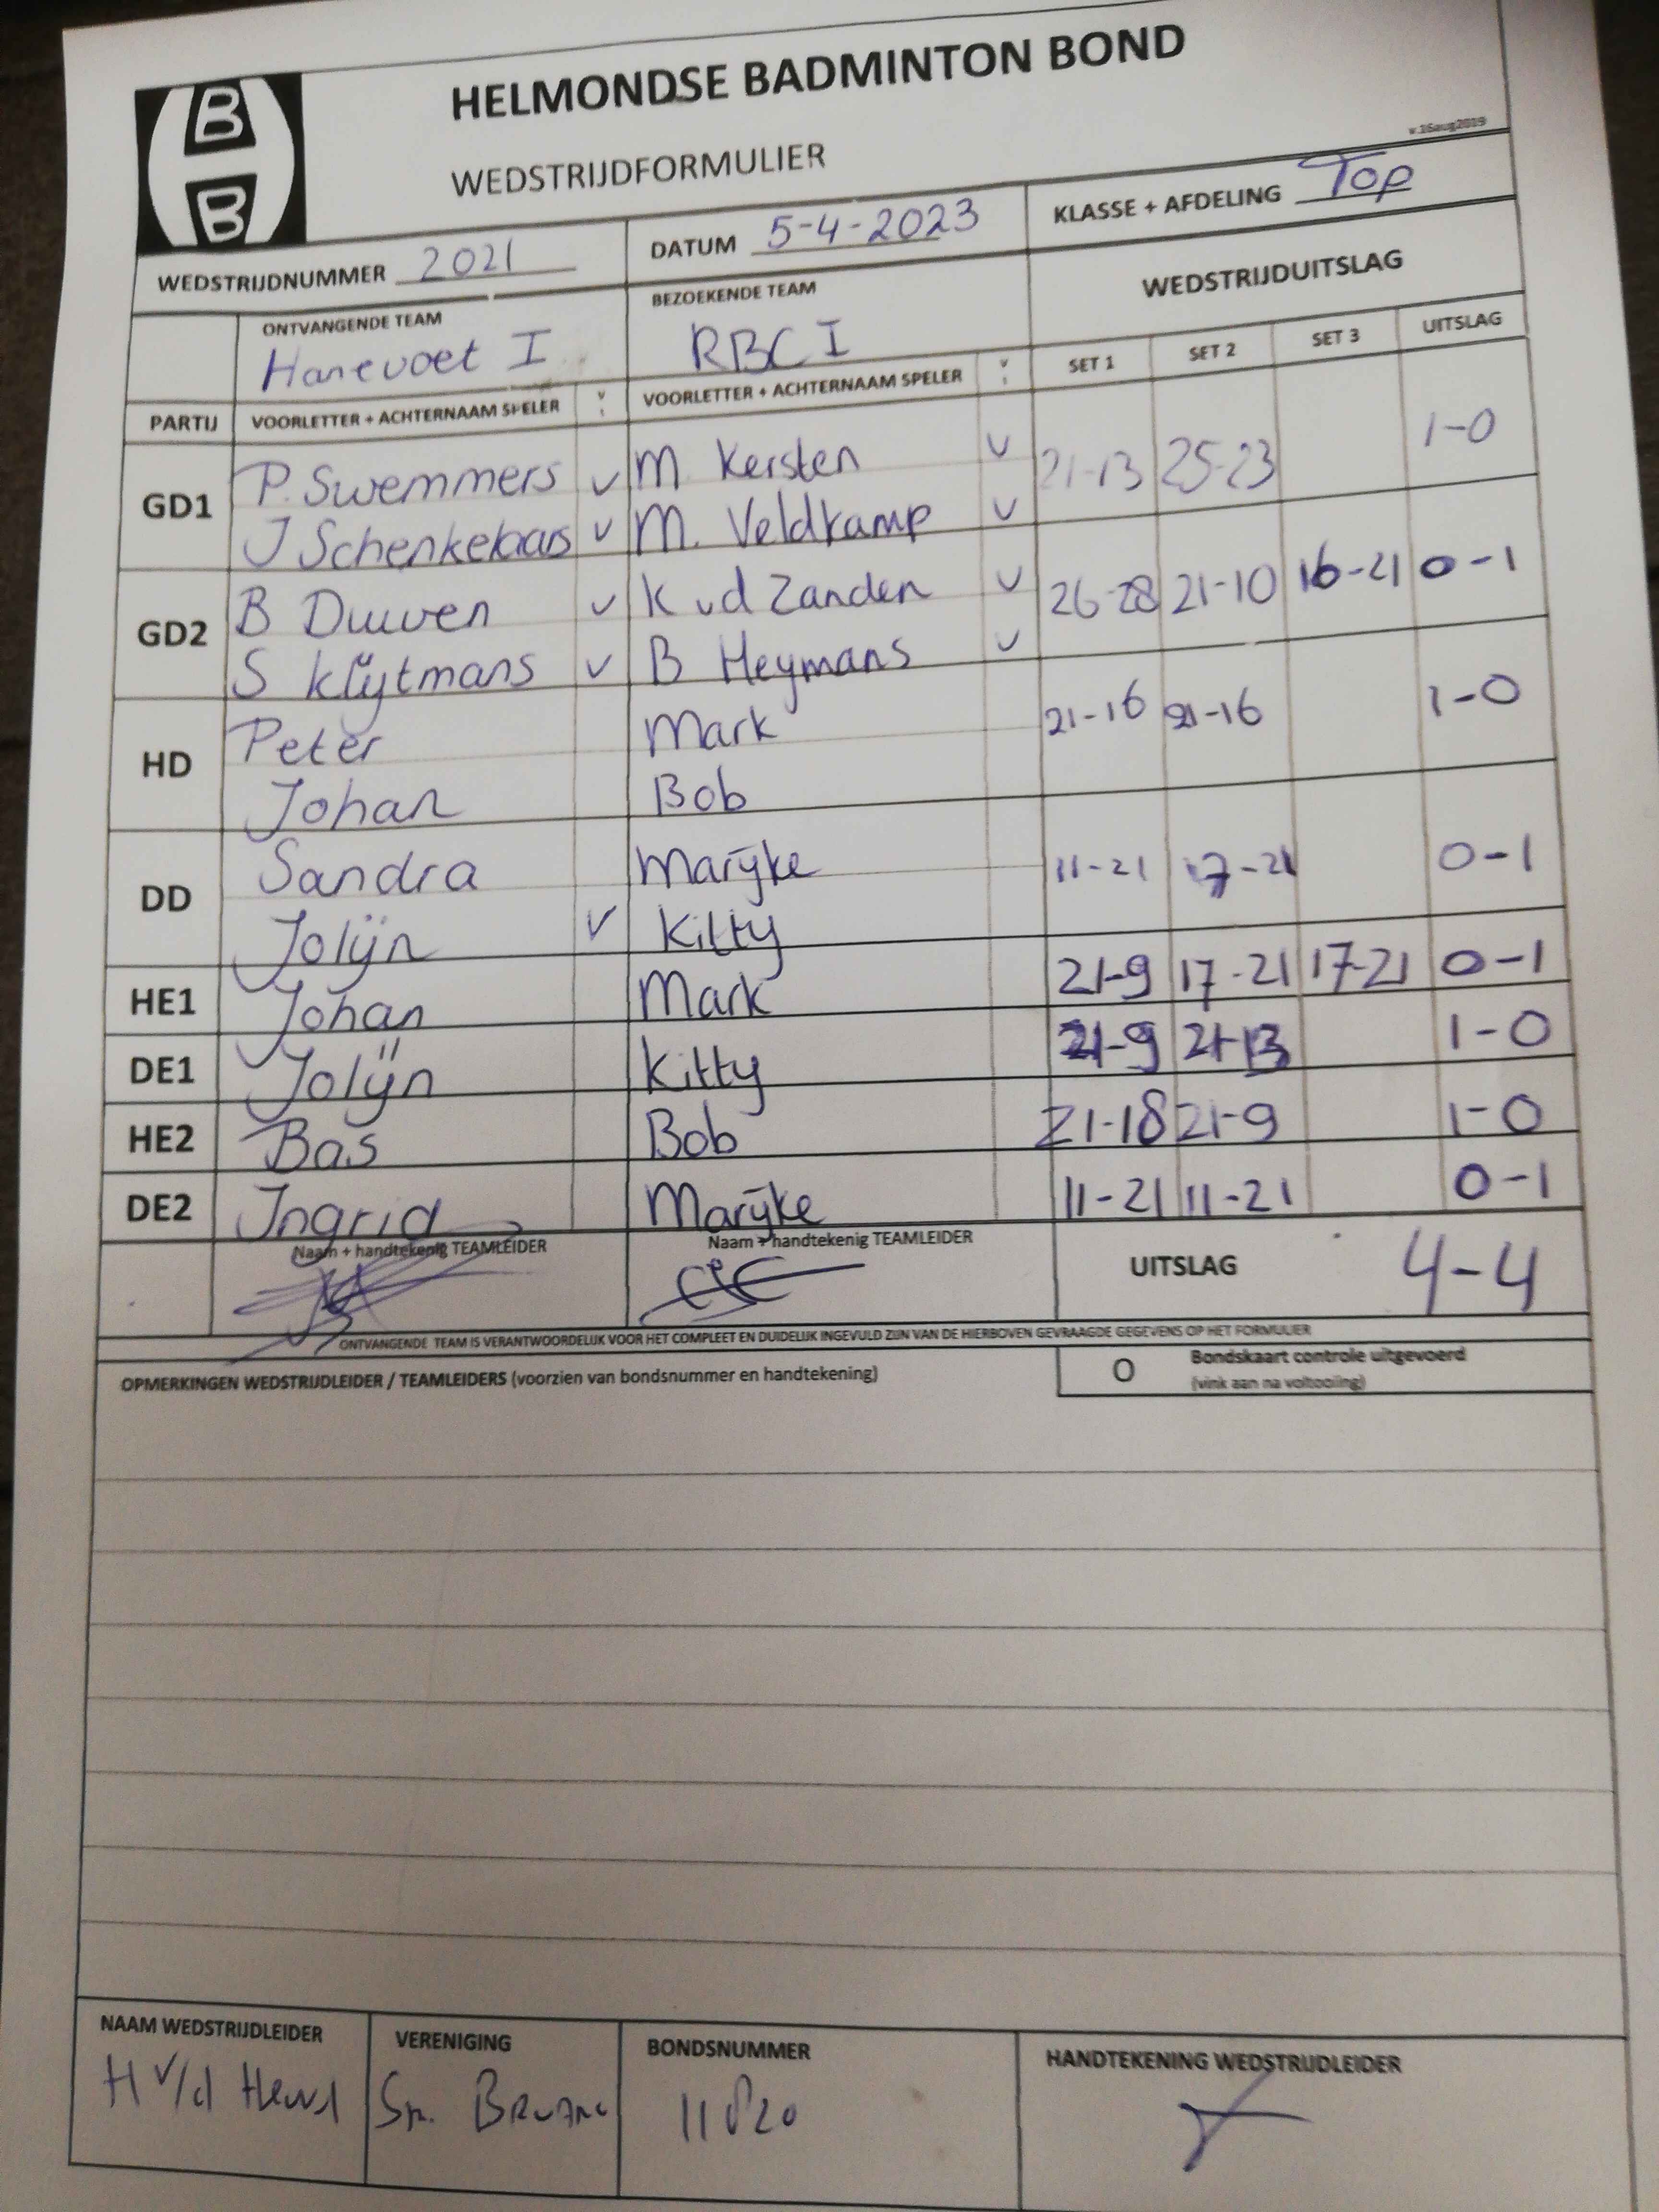 B
B
HELMONDSE BADMINTON BOND
WEDSTRIJDFORMULIER
v.16aug2019
WEDSTRIJDNUMMER 2021 DATUM 5-4-2023 KLASSE + AFDELING Top
ONTVANGENDE TEAM BEZOEKENDE TEAM WEDSTRIJDUITSLAG
Hanevoet I RBC I
PARTIJ VOORLETTER + ACHTERNAAM SPELER V VOORLETTER + ACHTERNAAM SPELER V SET 1 SET 2 SET 3 UITSLAG
GD1 P. Swemmers v M Kersten v 21-13 25-23 1-0
J Schenkelaars v M. Veldkamp v
GD2 B Duiven v K vd Zanden v 26-28 21-10 16-21 0-1
S Klijtmans v B Heymans v
HD Peter Mark 21-16 21-16 1-0
Johan Bob
DD Sandra Marijke 11-21 17-21 0-1
Jolijn v Kitty
HE1 Johan Mark 21-9 17-21 17-21 0-1
DE1 Jolijn Kitty 21-9 21-13 1-0
HE2 Bas Bob 21-18 21-9 1-0
DE2 Ingrid Marijke 11-21 11-21 0-1
Naam + handtekenig TEAMLEIDER Naam + handtekenig TEAMLEIDER UITSLAG 4-4
ONTVANGENDE TEAM IS VERANTWOORDELIJK VOOR HET COMPLEET EN DUIDELIJK INGEVULD ZIJN VAN DE HIERBOVEN GEVRAAGDE GEGEVENS OP HET FORMULIER
OPMERKINGEN WEDSTRIJDLEIDER / TEAMLEIDERS (voorzien van bondsnummer en handtekening) O Bondskaart controle uitgevoerd
(vink aan na voltooiing)
NAAM WEDSTRIJDLEIDER VERENIGING BONDSNUMMER HANDTEKENING WEDSTRIJDLEIDER
H v/d 11820